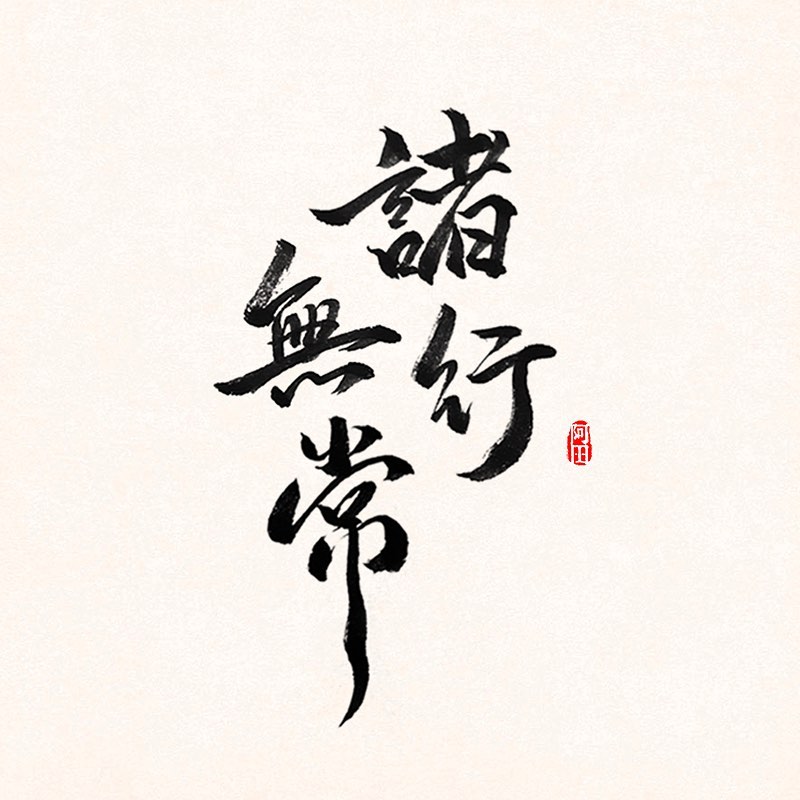 諸行
無常
阿田